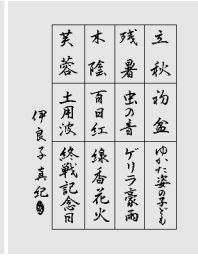 立秋
初盆
ゆかた姿の子ども
残暑
虫の音
ゲリラ豪雨
木陰
百日紅
線香花火
芙蓉
土用波
終戦記念日
伊良子真紀